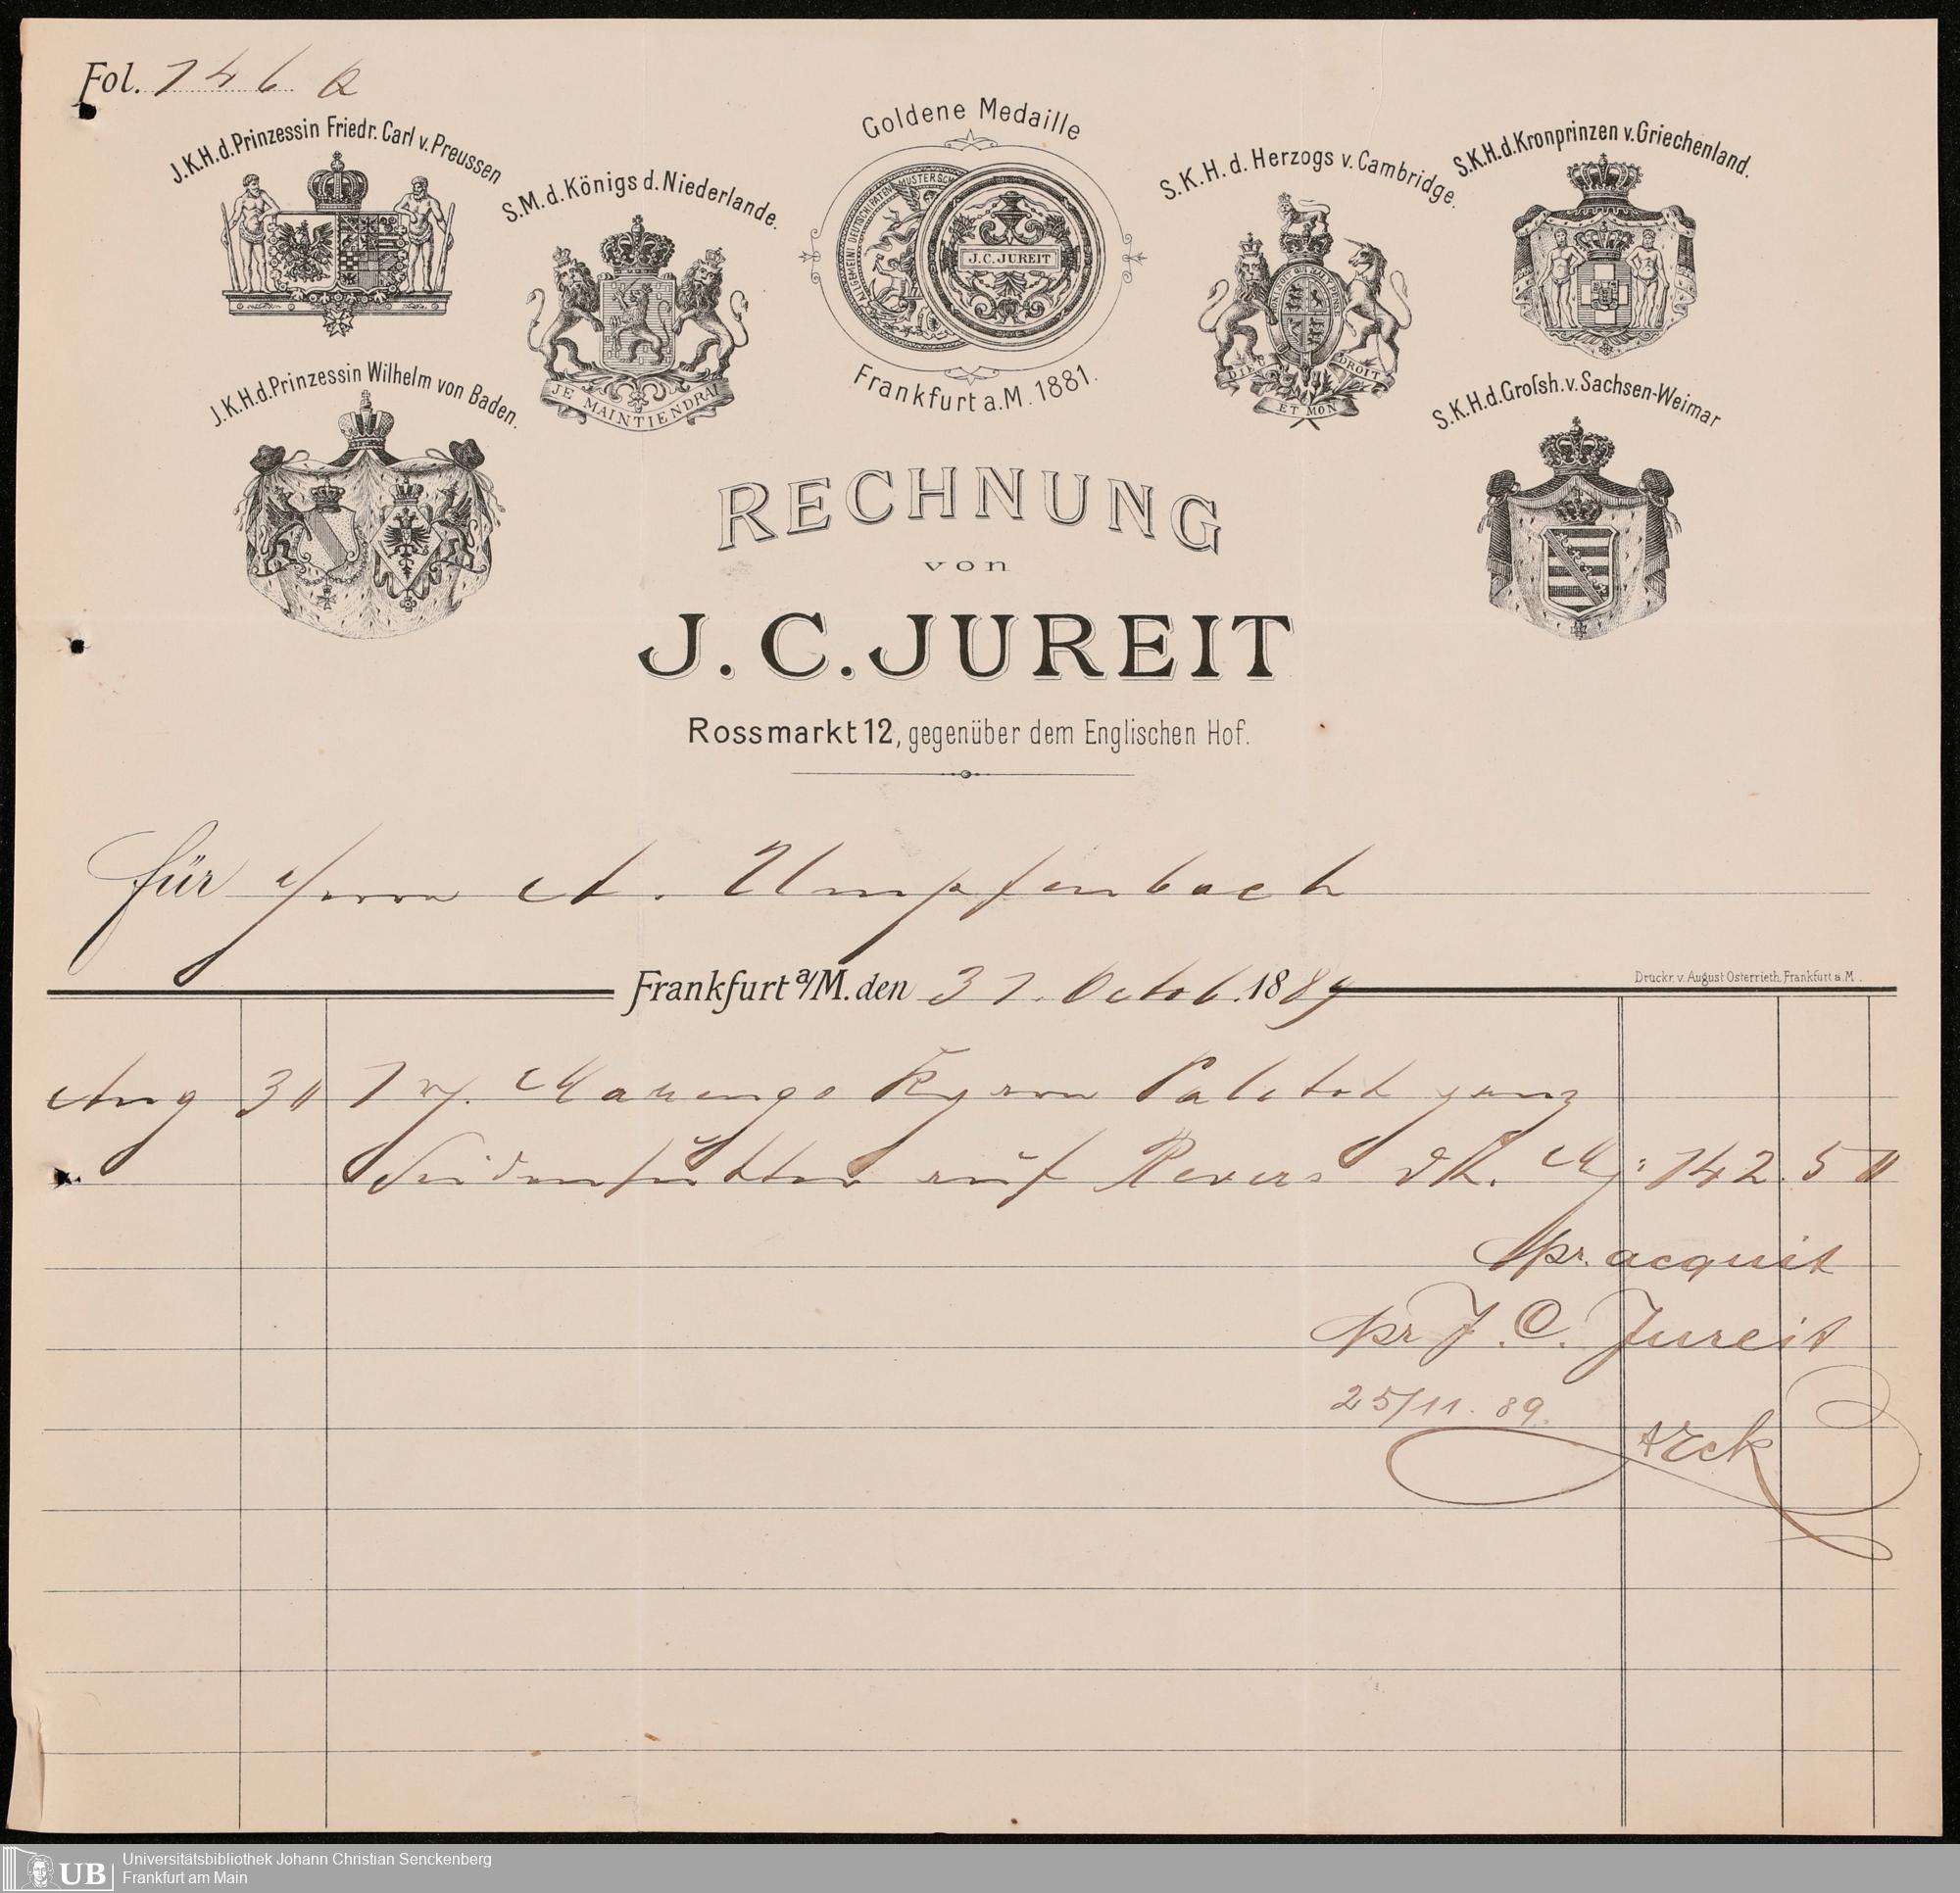 Fol. 146 R
J.K.H.d.Prinzessin Friedr. Carl v. Preussen
S.M.d.Königs d. Niederlande.
JE MAINTIENDRAI
Goldene Medaille
ALLGEMEINE DEUTSCHE PATENT MUSTERSCH
J.C.JUREIT
Frankfurt a.M. 1881.
S.K.H.d. Herzogs v. Cambridge.
DIEU ET MON DROIT
S.K.H.d.Kronprinzen v.Griechenland.
J.K.H.d.Prinzessin Wilhelm von Baden.
S.K.H.d.Groſsh.v.Sachsen-Weimar
RECHNUNG
von
J. C. JUREIT
Rossmarkt 12, gegenüber dem Englischen Hof.
für Herrn A. Umpfenbach
Druckr. v. August Osterrieth, Frankfurt a. M.
Frankfurt a/M. den 31. Octob. 1889
Aug 30 1 Marengo Paletot ganz
Seidenfutter auf Revers Mk: 142. 50
pr. acquit
pr J. C. Jureit
25/11. 89.
UB
Universitätsbibliothek Johann Christian Senckenberg
Frankfurt am Main